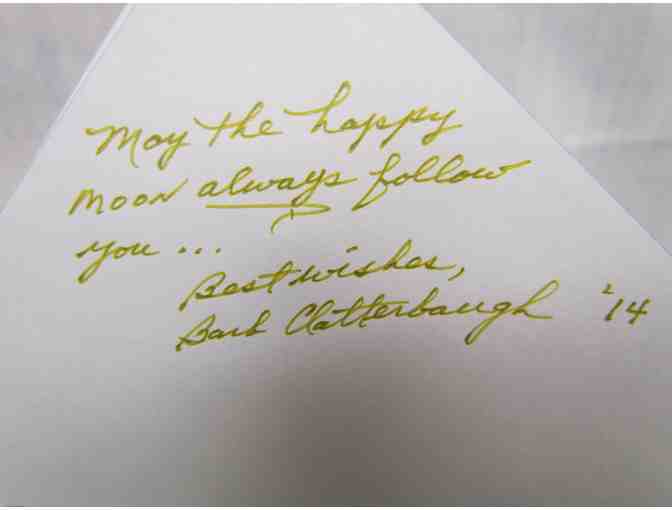 May the happy
moon always follow
you ...
Best wishes,
Barb Clatterbaugh '14